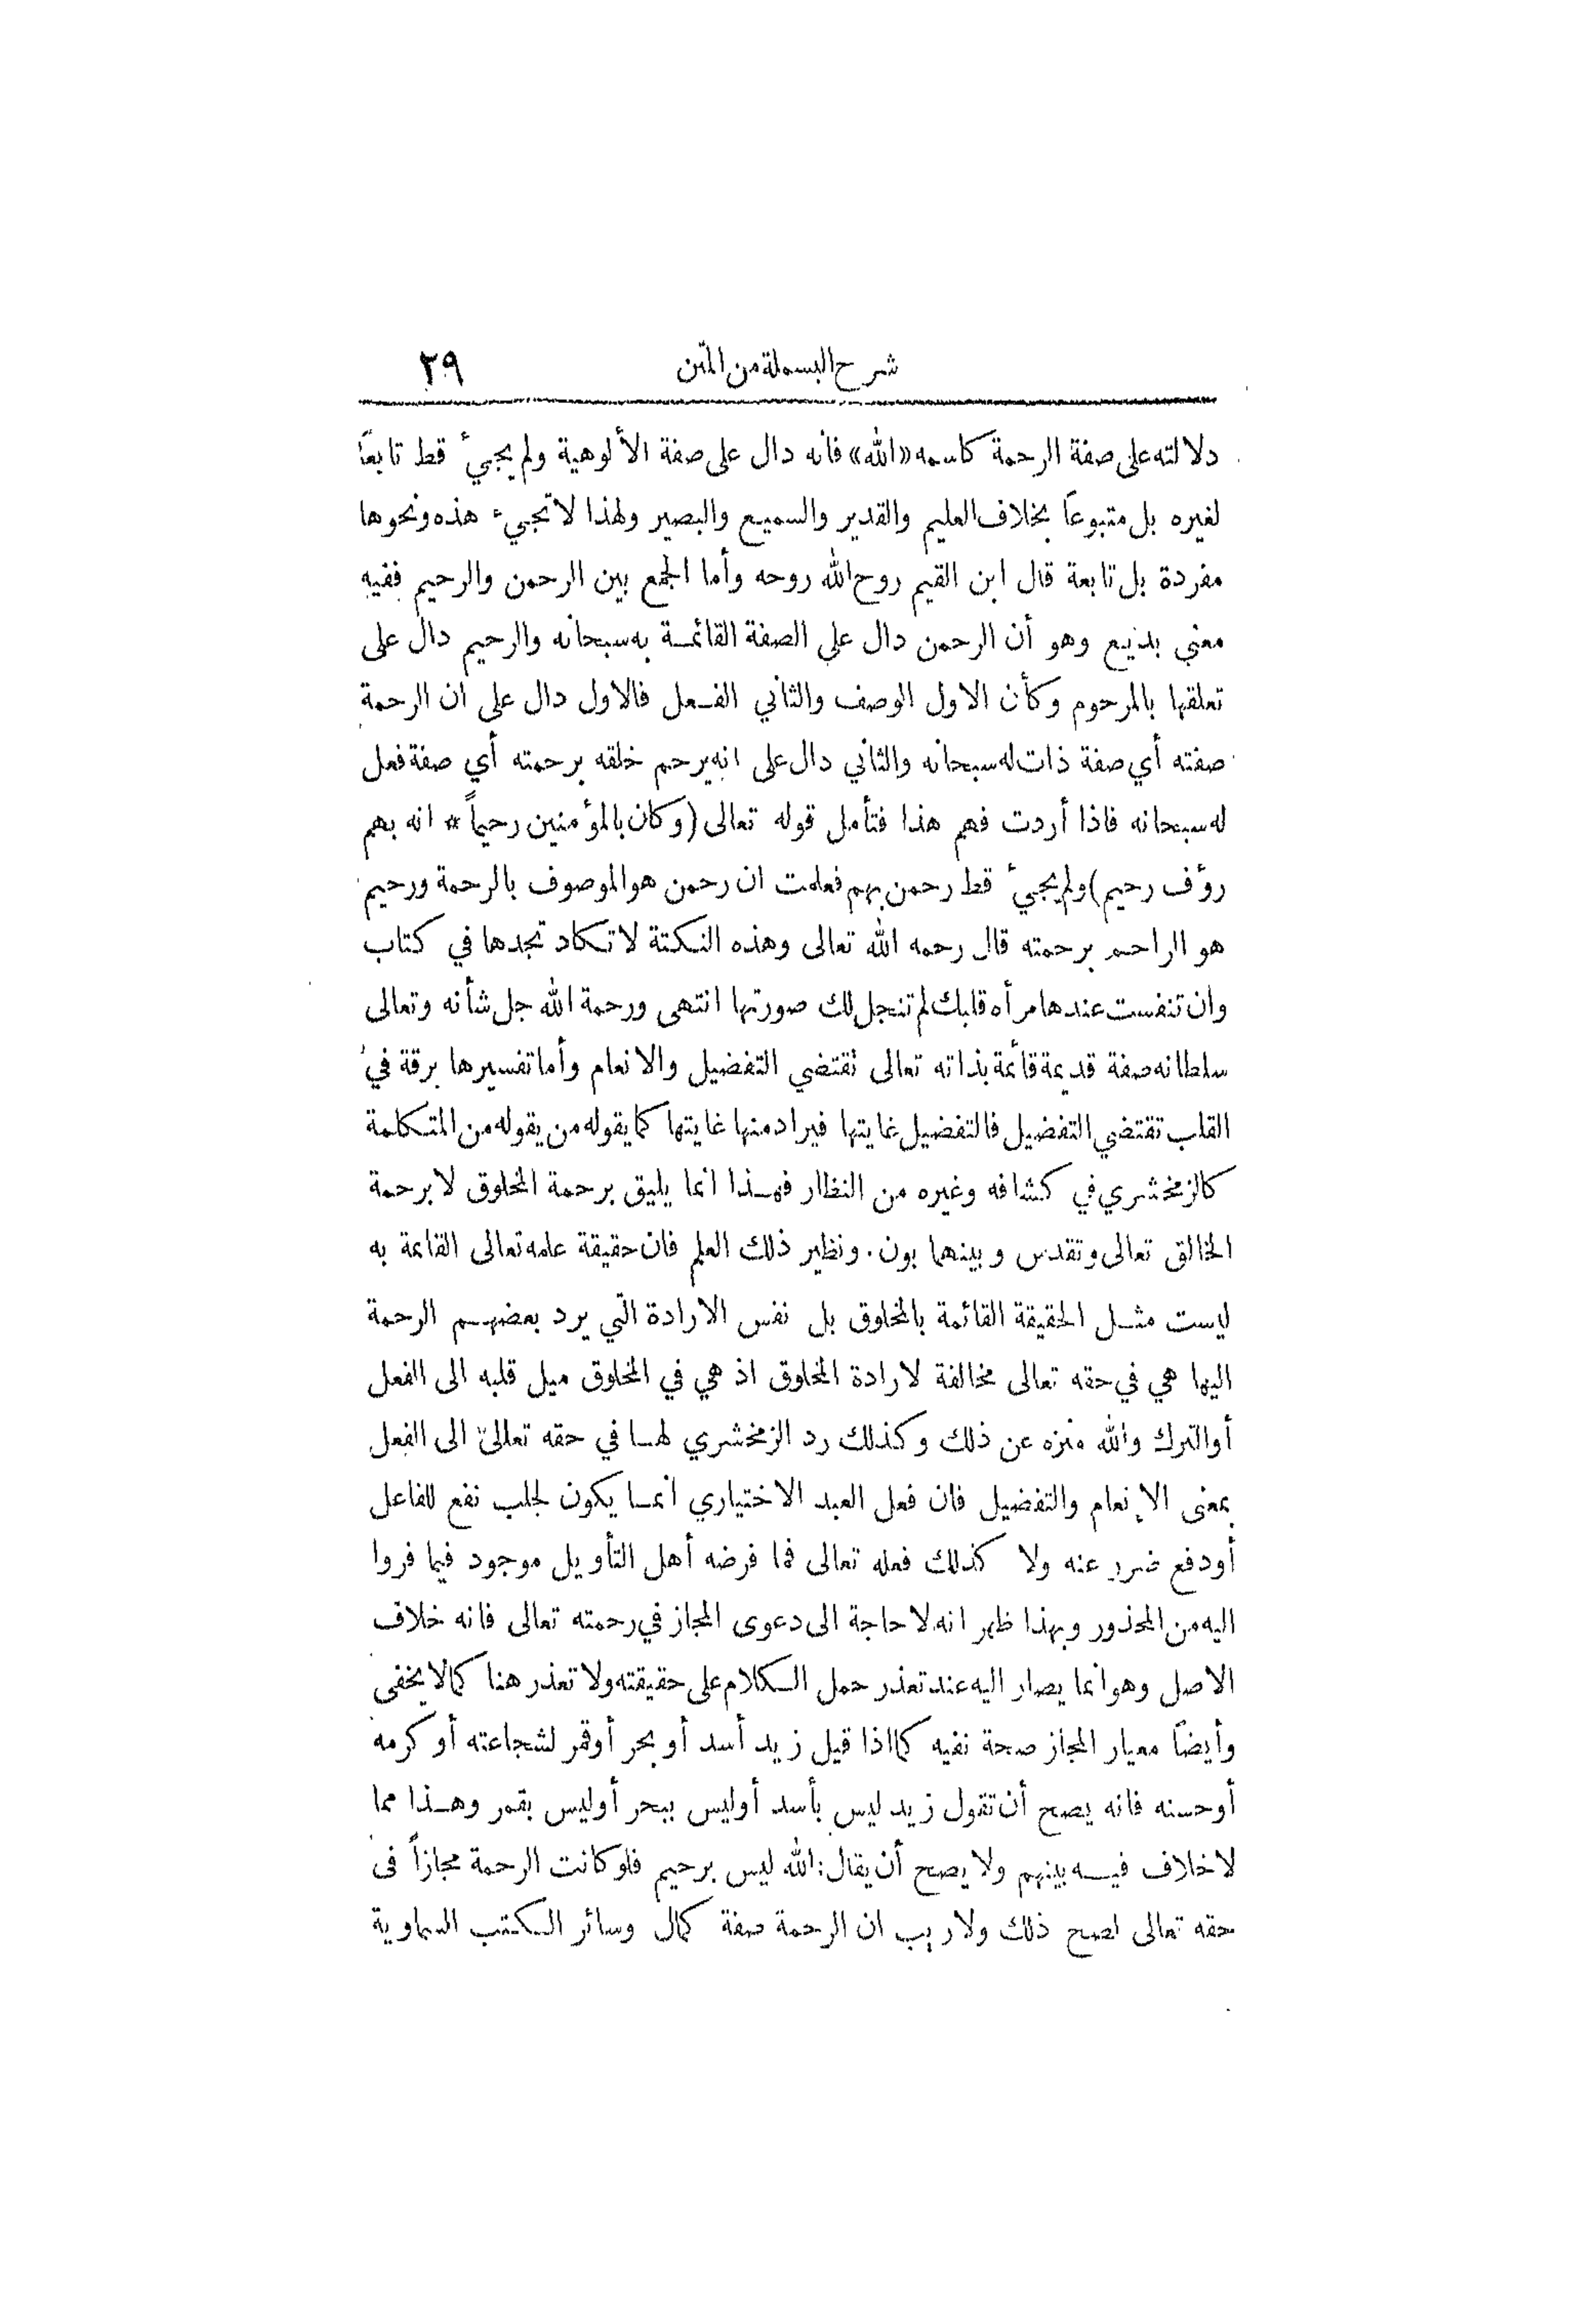 شرح البسملة من المتن ٢٩
دلالته على صفة الرحمة كاسمه «الله» فانه دال على صفة الألوهية ولم يجيء قط تابعًا
لغيره بل متبوعًا بخلاف العليم والقدير والسميع والبصير ولهذا لا تجيء هذه ونحوها
مفردة بل تابعة قال ابن القيم روح الله روحه وأما الجمع بين الرحمن والرحيم ففيه
معنى بديع وهو أن الرحمن دال على الصفة القائمة به سبحانه والرحيم دال على
تعلقها بالمرحوم وكأن الاول الوصف والثاني الفعل فالاول دال على ان الرحمة
صفته أي صفة ذات له سبحانه والثاني دال على انه يرحم خلقه برحمته أي صفة فعل
له سبحانه فاذا أردت فهم هذا فتأمل قوله تعالى (وكان بالمؤمنين رحيماً * انه بهم
رؤف رحيم) ولم يجيء قط رحمن بهم فعلمت ان رحمن هو الموصوف بالرحمة ورحيم
هو الراحم برحمته قال رحمه الله تعالى وهذه النكتة لا تكاد تجدها في كتاب
وان تنفست عندها مرأه قلبك لم تنجل لك صورتها انتهى ورحمة الله جل شأنه وتعالى
سلطانه صفة قديمة قائمة بذاته تعالى تقتضي التفضيل والانعام وأما تفسيرها برقة في
القلب تقتضي التفضيل فالتفضيل غايتها فيراد منها غايتها كما يقوله من يقوله من المتكلمة
كالزمخشري في كشافه وغيره من النظار فهذا انما يليق برحمة المخلوق لا برحمة
الخالق تعالى وتقدس وبينهما بون. ونظير ذلك العلم فان حقيقة علمه تعالى القائمة به
ليست مثل الحقيقة القائمة بالمخلوق بل نفس الارادة التي يرد بعضهم الرحمة
اليها هي في حقه تعالى مخالفة لارادة المخلوق اذ هي في المخلوق ميل قلبه الى الفعل
أو الترك والله منزه عن ذلك وكذلك رد الزمخشري لها في حقه تعالى الى الفعل
بمعنى الإنعام والتفضيل فان فعل العبد الاختياري انما يكون لجلب نفع للفاعل
أو دفع ضرر عنه ولا كذلك فعله تعالى فما فرضه أهل التأويل موجود فيما فروا
اليه من المحذور وبهذا ظهر انه لا حاجة الى دعوى المجاز في رحمته تعالى فانه خلاف
الاصل وهو انما يصار اليه عند تعذر حمل الكلام على حقيقته ولا تعذر هنا كما لا يخفى
وأيضًا معيار المجاز صحة نفيه كما اذا قيل زيد أسد أو بحر أو قمر لشجاعته أو كرمه
أو حسنه فانه يصح أن تقول زيد ليس بأسد أو ليس ببحر أو ليس بقمر وهذا مما
لا خلاف فيه بينهم ولا يصح أن يقال: الله ليس برحيم فلو كانت الرحمة مجازاً فى
حقه تعالى لصح ذلك ولا ريب ان الرحمة صفة كمال وسائر الكتب السماوية